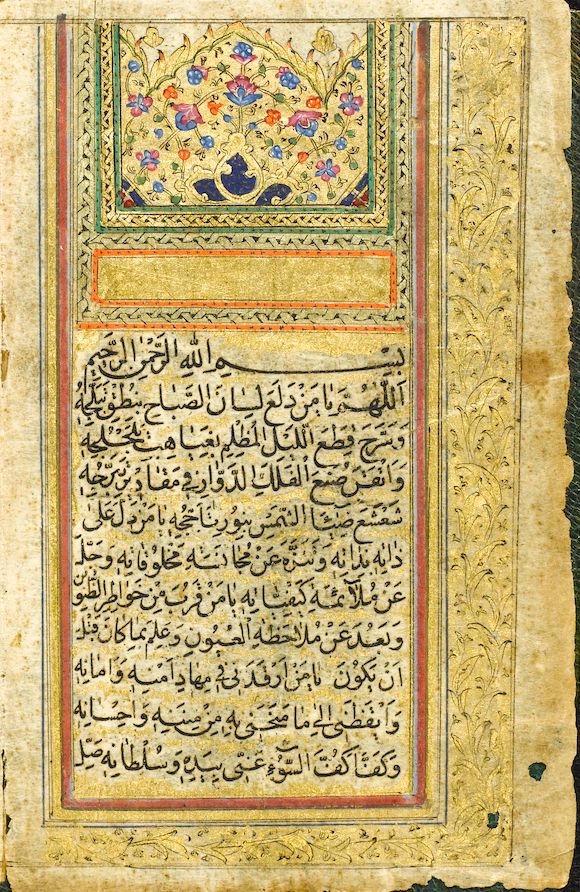 بسم الله الرحمن الرحيم
اللهم يا من دلع لسان الصباح بنطق تبلجه
وسرح قطع الليل المظلم بغياهب تلجلجه
واتقن صنع الفلك الدوار في مقادير تبرجه
شعشع ضياء الشمس بنور تاججه يا من دل على
ذاته بذاته وتنزه عن مجانسة مخلوقاته وجل
عن ملائمة كيفياته يا من قرب من خواطر الظنون
وبعد عن ملاحظة العيون وعلم بما كان قبل
ان يكون يا من ارقدني في مهاد امنه وامانه
وايقظني الى ما منحني به من مننه واحسانه
وكف اكف السوء عني بيده وسلطانه صل